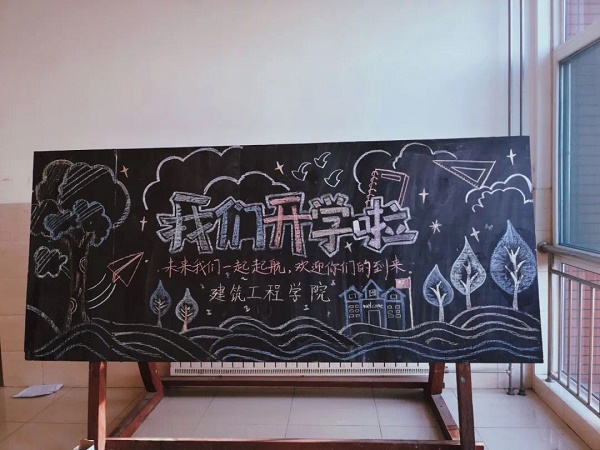 我们开学啦
未来我们一起起航,欢迎你们的到来.
建筑工程学院
welcome